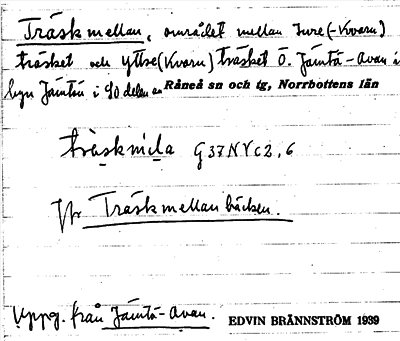 Träskmellan, området mellan Inre (-Kvarn)
träsket och Yttre (Kvarn) träsket Ö. Jämtö-Avan i
byn Jämtön i
Råneå sn och tg, Norrbottens län
träskmila G37NVc2,6
Jfr Träskmellanbäcken.
Uppg. från Jämtö-Avan.
EDVIN BRÄNNSTRÖM 1939